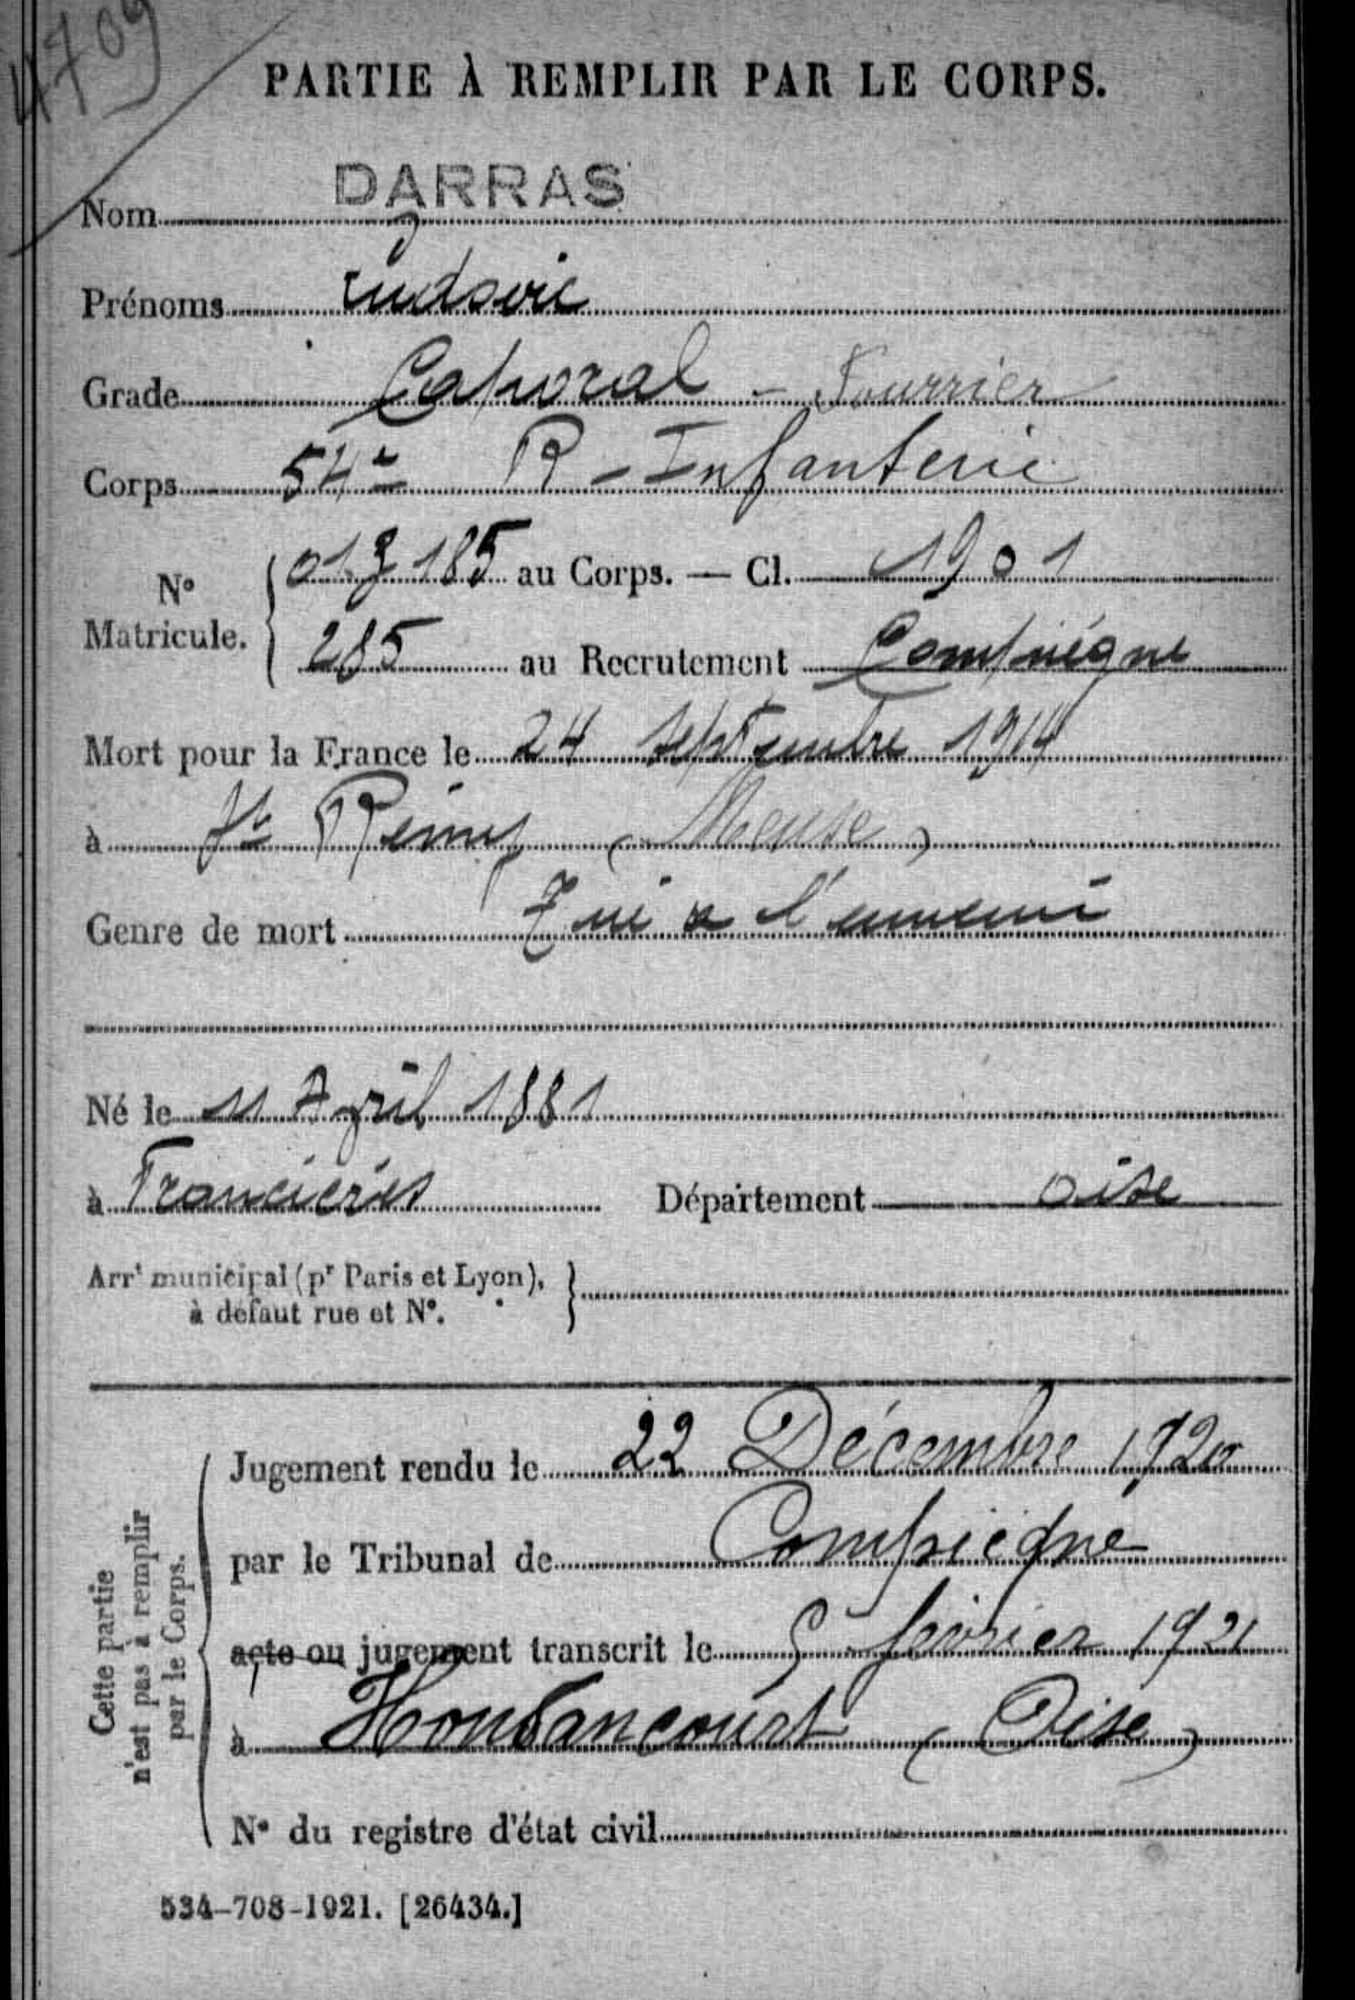 4709
PARTIE À REMPLIR PAR LE CORPS.
Nom DARRAS
Prénoms Ludovic
Grade Caporal - Fourrier
Corps 54e R - Infanterie
No Matricule. 185 au Corps. — Cl. 1901
285 au Recrutement Compiégne
Mort pour la France le 24 Septembre 1914
à St Rémy (Meuse)
Genre de mort Tué a l'ennemi
Né le 11 Avril 1881
à Francières Département Oise
Arrt municipal (pr Paris et Lyon),
à défaut rue et No.
Cette partie
n'est pas à remplir
par le Corps.
Jugement rendu le 22 Décembre 1920
par le Tribunal de Compiègne
acte ou jugement transcrit le 5 février 1921
à Houdancourt (Oise)
No du registre d'état civil
534-708-1921. [26434.]